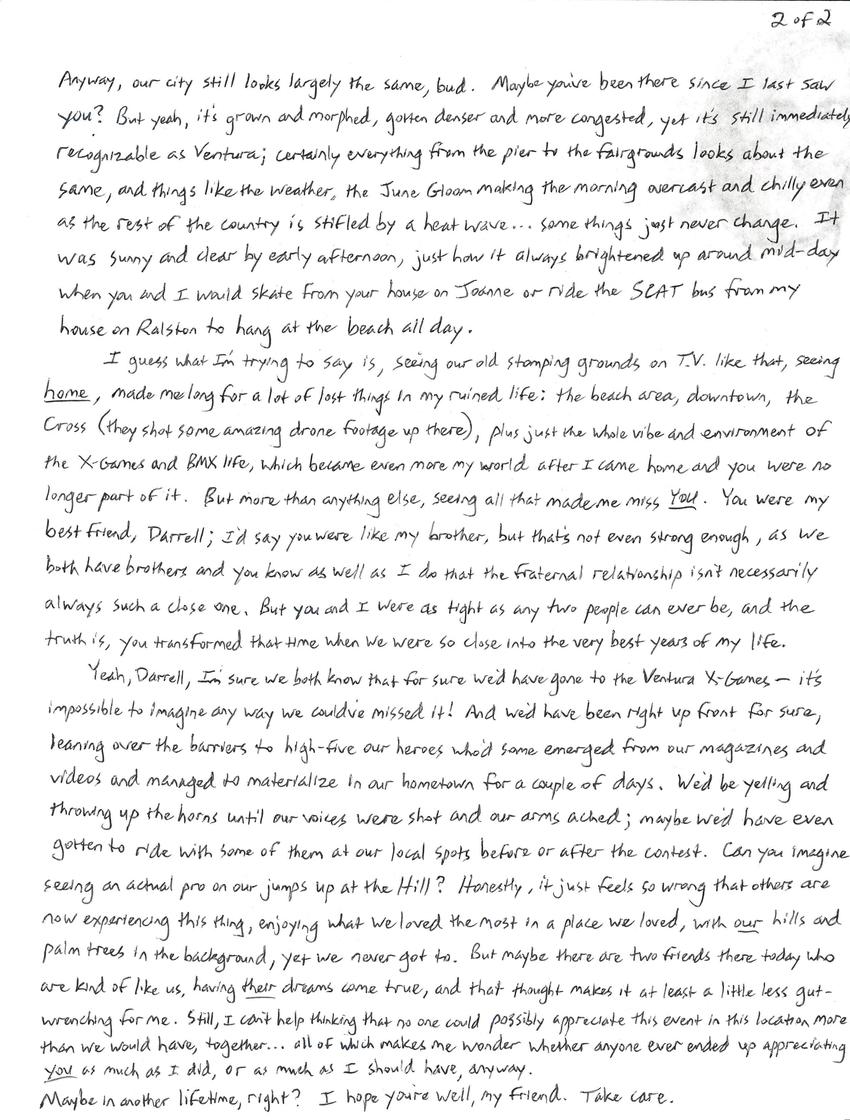 2 of 2
Anyway, our city still looks largely the same, bud. Maybe you've been there since I last saw
you? But yeah, it's grown and morphed, gotten denser and more congested, yet it's still immediately
recognizable as Ventura; certainly everything from the pier to the fairgrounds looks about the
same, and things like the weather, the June Gloom making the morning overcast and chilly even
as the rest of the country is stifled by a heat wave... some things just never change. It
was sunny and clear by early afternoon, just how it always brightened up around mid-day
when you and I would skate from your house on Joanne or ride the SCAT bus from my
house on Ralston to hang at the beach all day.
I guess what I'm trying to say is, seeing our old stomping grounds on T.V. like that, seeing
home, made me long for a lot of lost things in my ruined life: the beach area, downtown, the
Cross (they shot some amazing drone footage up there), plus just the whole vibe and environment of
the X-Games and BMX life, which became even more my world after I came home and you were no
longer part of it. But more than anything else, seeing all that made me miss you. You were my
best friend, Darrell; I'd say you were like my brother, but that's not even strong enough, as we
both have brothers and you know as well as I do that the fraternal relationship isn't necessarily
always such a close one. But you and I were as tight as any two people can ever be, and the
truth is, you transformed that time when we were so close into the very best years of my life.
Yeah, Darrell, I'm sure we both know that for sure we'd have gone to the Ventura X-Games — it's
impossible to imagine any way we could've missed it! And we'd have been right up front for sure,
leaning over the barriers to high-five our heroes who'd some emerged from our magazines and
videos and managed to materialize in our hometown for a couple of days. We'd be yelling and
throwing up the horns until our voices were shot and our arms ached; maybe we'd have even
gotten to ride with some of them at our local spots before or after the contest. Can you imagine
seeing an actual pro on our jumps up at the Hill? Honestly, it just feels so wrong that others are
now experiencing this thing, enjoying what we loved the most in a place we loved, with our hills and
palm trees in the background, yet we never got to. But maybe there are two friends there today who
are kind of like us, having their dreams come true, and that thought makes it at least a little less gut-
wrenching for me. Still, I can't help thinking that no one could possibly appreciate this event in this location more
than we would have, together... all of which makes me wonder whether anyone ever ended up appreciating
you as much as I did, or as much as I should have, anyway.
Maybe in another lifetime, right? I hope you're well, my friend. Take care.